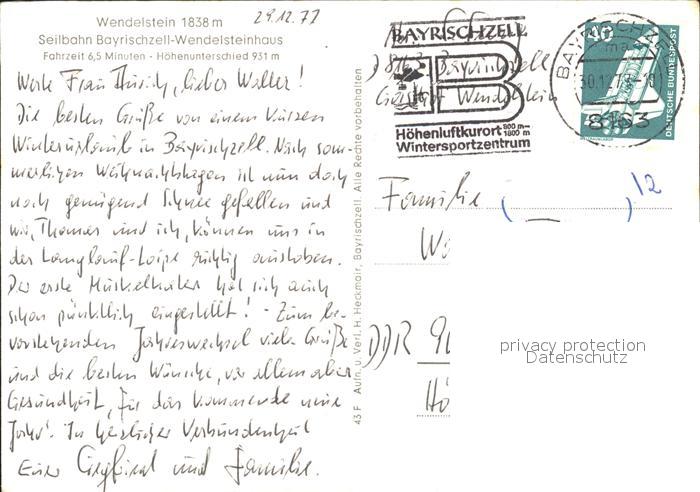 Wendelstein 1838 m
29.12.77
Seilbahn Bayrischzell-Wendelsteinhaus
Fahrzeit 6,5 Minuten - Höhenunterschied 931 m
Werte Frau, lieber Walter!
Die besten Grüße von einem kurzen
Winterurlaub in Bayrischzell. Nach som-
merlichen Weihnachtstagen ist nun doch
noch genügend Schnee gefallen und
wir, Thomas und ich, können uns in
der Langlauf-Loipe richtig austoben.
Der erste Muskelkater hat sich auch
schon pünktlich eingestellt! - Zum be-
vorstehenden Jahreswechsel viele Grüße
und die besten Wünsche, vor allem aber
Gesundheit, für das kommende neue
Jahr! In herzlicher Verbundenheit
Euer Siegfried und Familie.
43 F Aufn. u. Verl. H. Heckmair, Bayrischzell. Alle Rechte vorbehalten
D 8163 Bayrischzell
Wendelstein
BAYRISCHZELL
Höhenluftkurort 800 m- 1800 m
Wintersportzentrum
BAYRISCHZELL
ma
30.12.77-10
8163
40
DEUTSCHE BUNDESPOST
WELTRAUMLABOR
Familie ( _ ) 12
Wo
DDR 90
Hö
privacy protection
Datenschutz